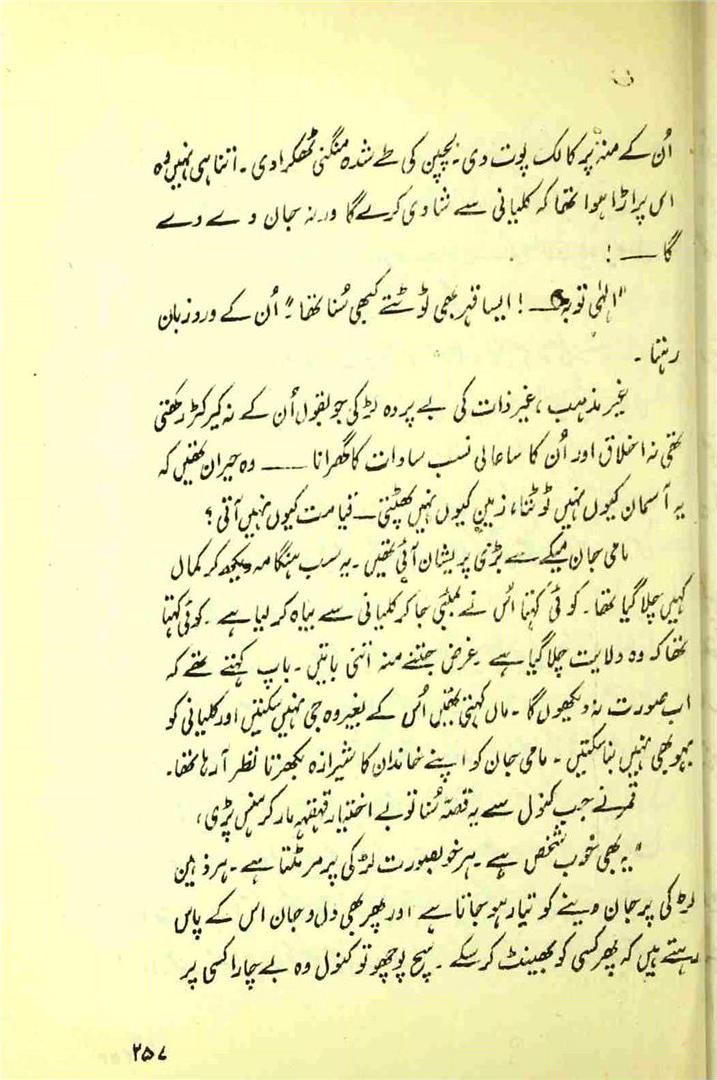 اُن کے منہ پر کالک پوت دی۔ بچپن کی طے شدہ منگنی ٹھکرا دی۔ اتنا ہی نہیں وہ
اس پر اڑا ہوا تھا کہ کلیانی سے شادی کرے گا ورنہ جان دے دے
گا — !
"الٰہی توبہ — ! ایسا قہر بھی ٹوٹتے کبھی سُنا تھا" اُن کے ورد زبان
رہتا ۔
غیر مذہب، غیر ذات کی بے پردہ لڑکی جو بقول اُن کے نہ کیرکٹر رکھتی
تھی نہ اخلاق اور اُن کا سا عالی نسب سادات کا گھرانا — وہ حیران تھیں کہ
یہ آسمان کیوں نہیں ٹوٹتا، زمین کیوں نہیں پھٹتی — قیامت کیوں نہیں آتی؟
مامی جان میکے سے بڑی پریشان آئی تھیں۔ یہ سب ہنگامہ دیکھ کر کمال
کہیں چلا گیا تھا۔ کوئی کہتا اُس نے بمبئی جا کر کلیانی سے بیاہ کر لیا ہے۔ کوئی کہتا
تھا کہ وہ ولایت چلا گیا ہے۔ غرض جتنے منہ اتنی باتیں۔ باپ کہتے تھے کہ
اب صورت نہ دیکھوں گا۔ ماں کہتی تھیں اُس کے بغیر وہ جی نہیں سکتیں اور کلیانی کو
بہو بھی نہیں بنا سکتیں۔ مامی جان کو اپنے خاندان کا شیرازہ بکھرتا نظر آ رہا تھا۔
قمر نے جب کنول سے یہ قصّہ سُنا تو بے اختیار قہقہہ مار کر ہنس پڑی،
"یہ بھی خوب شخص ہے۔ ہر خوبصورت لڑکی پر مر مٹتا ہے۔ ہر ذہین
لڑکی پر جان دینے کو تیار ہو جاتا ہے اور پھر بھی دل و جان اس کے پاس
رہتے ہیں کہ پھر کسی کو بھینٹ کر سکے۔ سچ پوچھو تو کنول وہ بے چارا کسی پر
۲۵۷